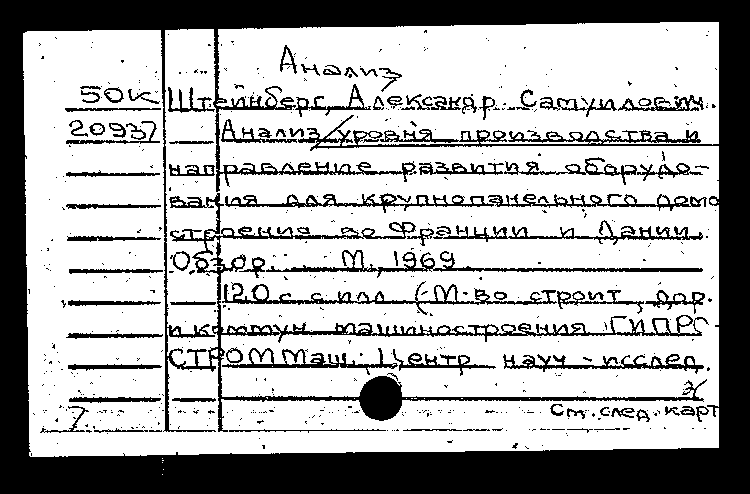 Анализ
50К Штейнберг, Александр Самуилович.
20937 Анализ уровня производства и
направление развития оборудо-
вания для крупнопанельного домо
строения во Франции и Дании.
Обзор. М., 1969.
120 с. с илл. (М-во строит., дор.
и коммун. машиностроения ГИПРО-
СТРОММаш. Центр. науч-исслед.
См. след. карт
7.